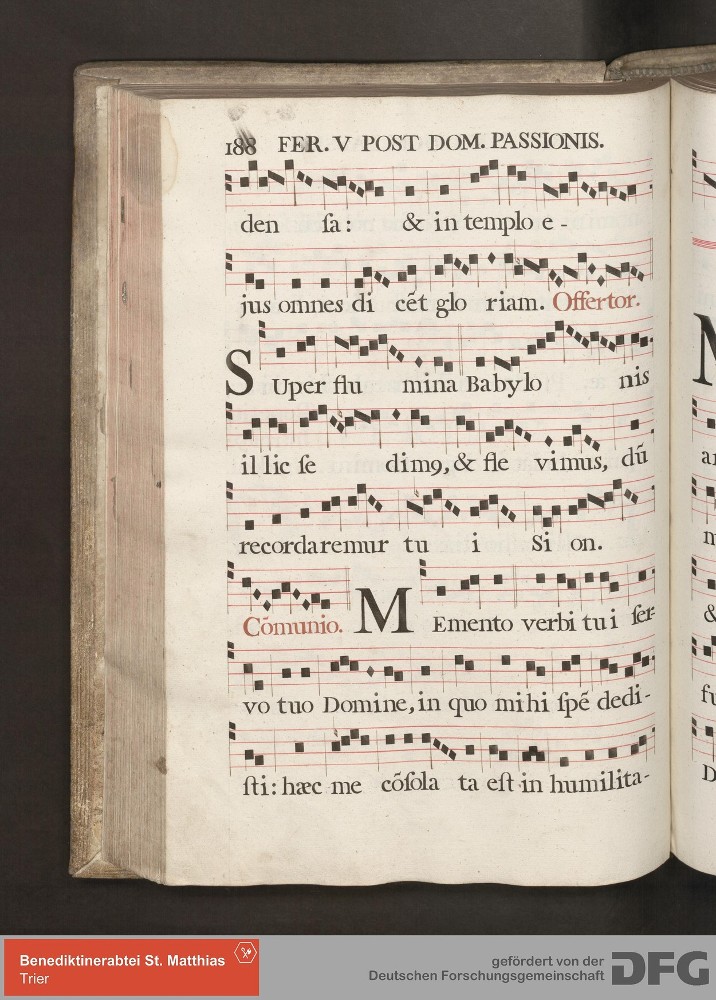 188 FER. V POST DOM. PASSIONIS.
den ſa: & in templo e-
jus omnes di cẽt glo riam. Offertor.
SUper flu mina Babylo nis
il lic ſe dim9, & fle vimus, dũ
recordaremur tu i Si on.
Cõmunio. MEmento verbi tu i ſer-
vo tuo Domine, in quo mihi ſpẽ dedi-
ſti: hæc me cõſola ta eſt in humilita-
Benediktinerabtei St. Matthias
Trier
gefördert von der
Deutschen Forschungsgemeinschaft
DFG